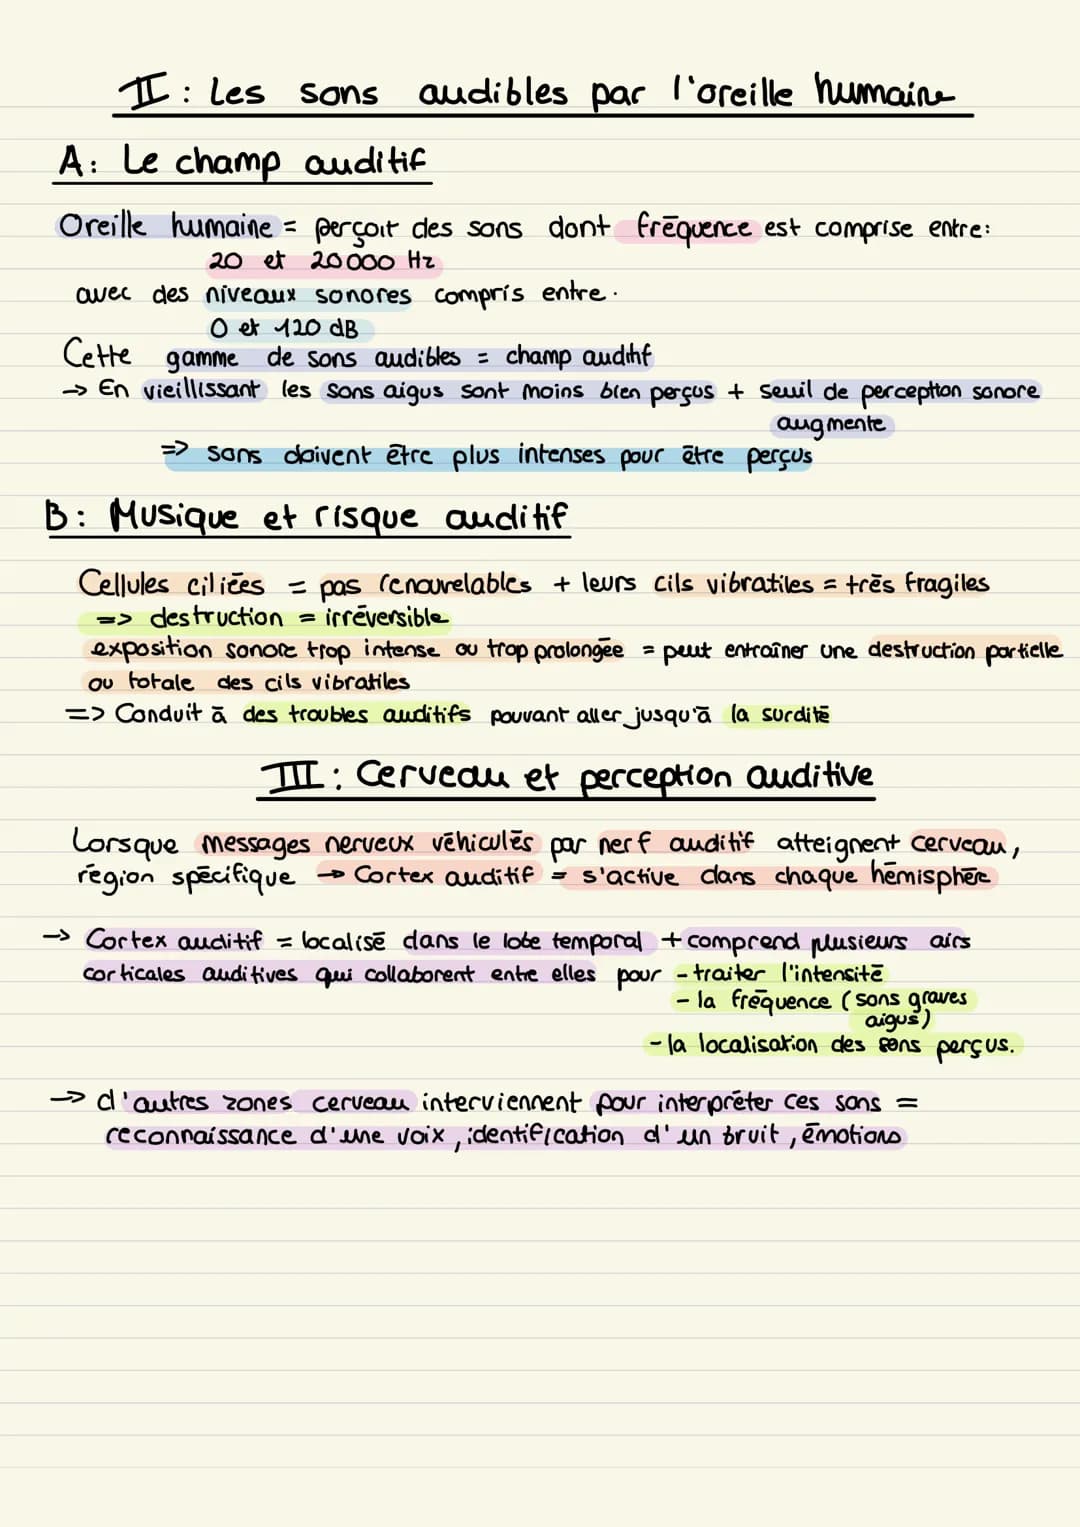 II : Les sons audibles par l'oreille humaine
A : Le champ auditif
Oreille humaine = perçoit des sons dont fréquence est comprise entre :
20 et 20000 Hz
avec des niveaux sonores compris entre .
0 et 120 dB
Cette gamme de sons audibles = champ auditif
→ En vieillissant les sons aigus sont moins bien perçus + seuil de perception sonore
augmente
=> sons doivent être plus intenses pour être perçus
B : Musique et risque auditif
Cellules ciliées = pas renouvelables + leurs cils vibratiles = très fragiles
=> destruction = irréversible
exposition sonore trop intense ou trop prolongée = peut entraîner une destruction partielle
ou totale des cils vibratiles
=> Conduit à des troubles auditifs pouvant aller jusqu'à la surdité
III : Cerveau et perception auditive
Lorsque messages nerveux véhiculés par nerf auditif atteignent cerveau,
région spécifique → Cortex auditif = s'active dans chaque hémisphère
→ Cortex auditif = localisé dans le lobe temporal + comprend plusieurs airs
corticales auditives qui collaborent entre elles pour - traiter l'intensité
- la fréquence (sons graves
aigus)
- la localisation des sons perçus.
→ d'autres zones cerveau interviennent pour interpréter ces sons =
reconnaissance d'une voix, identification d'un bruit, émotions